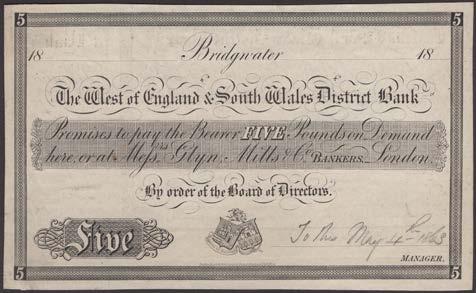 5 5
18 Bridgwater 18
The West of England & South Wales District Bank
Promises to pay the Bearer FIVE Pounds on Demand
here, or at Messrs Glyn, Mills & Co. BANKERS, London.
By order of the Board of Directors.
Five
To this May 4th 1863
MANAGER.
5 5